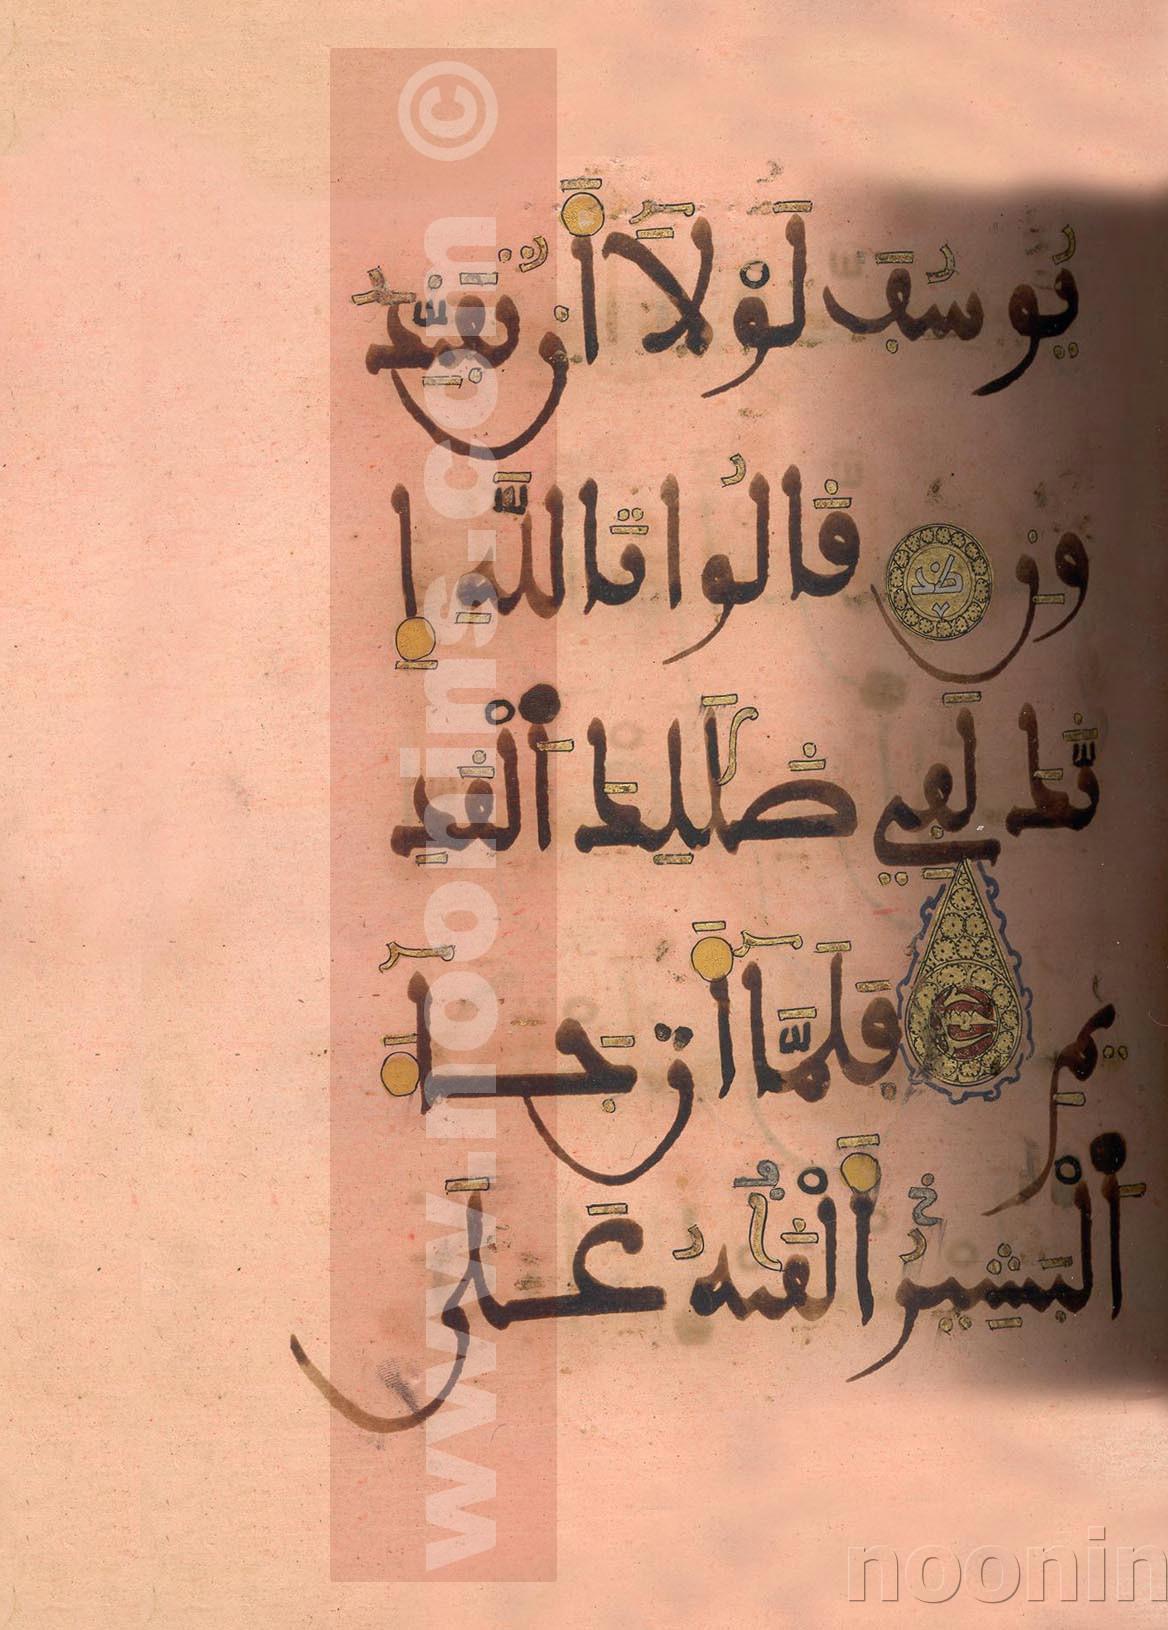 يُوسُفَ لَوْلَا أَن تُفَنِّدُ
ونِ قَالُوا تَاللَّهِ إِ
نَّكَ لَفِي ضَلَٰلِكَ الْقَدِ
يمِ فَلَمَّا أَن جَاءَ
الْبَشِيرُ أَلْقَىٰهُ عَلَىٰ
www.noonins.com ©
noonin